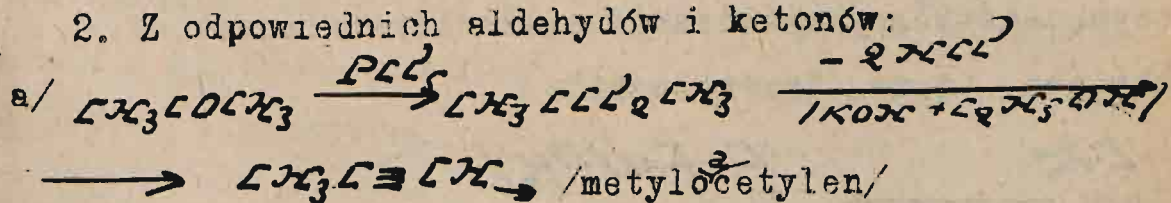 2. Z odpowiednich aldehydów i ketonów:
a/ CH₃COCH₃ —PCl₅→ CH₃CCl₂CH₃ —− 2HCl /KOH + C₂H₅OH/
→ CH₃C≡CH → /metyloacetylen/